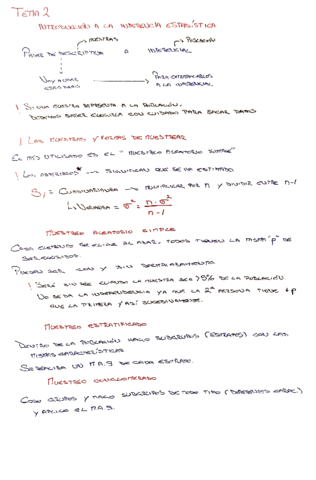 TEMA 2
INTRODUCCIÓN A LA INFERENCIA ESTADÍSTICA
MUESTRAS POBLACIÓN
PASAR DE DESCRIPTIVA A INFERENCIAL
VOY A USAR ESOS DATOS PARA EXTRAPOLARLOS A LA INFERENCIAL
! SI UNA MUESTRA REPRESENTA A LA POBLACIÓN.
DEBEMOS SABER ELEGIRLA CON CUIDADO PARA SACAR DATOS
1. LAS MUESTRAS Y FORMAS DE MUESTREAR
EL MÁS UTILIZADO ES EL "MUESTREO ALEATORIO SIMPLE"
! LOS ASTERISCOS* → SIGNIFICAN QUE SE HA ESTIMADO
= CUASIVARIANZA → MULTIPLICAR POR n Y DIVIDIR ENTRE n-1
↳ VARIANZA = σ² = n·σ² / n-1
MUESTREO ALEATORIO SIMPLE
CADA ELEMENTO SE ELIGE AL AZAR, TODOS TIENEN LA MISMA "p" DE
SER ELEGIDOS.
PUEDEN SER CON Y SIN REEMPLAZAMIENTO.
! SERÁ SIN REE. CUANDO LA MUESTRA SEA > 5% DE LA POBLACIÓN.
NO SE DA LA INDEPENDENCIA YA QUE LA 2ª PERSONA TIENE + p
QUE LA PRIMERA Y ASÍ SUCESIVAMENTE.
MUESTREO ESTRATIFICADO
DENTRO DE LA POBLACIÓN HAGO SUBGRUPOS (ESTRATOS) CON LAS
MISMAS CARACTERÍSTICAS
SE REALIZA UN M.A.S DE CADA ESTRATO.
MUESTREO CONGLOMERADO
COJO GRUPOS Y HAGO SUBGRUPOS DE TODO TIPO (DIFERENTES CARAC.)
Y APLICO EL M.A.S.